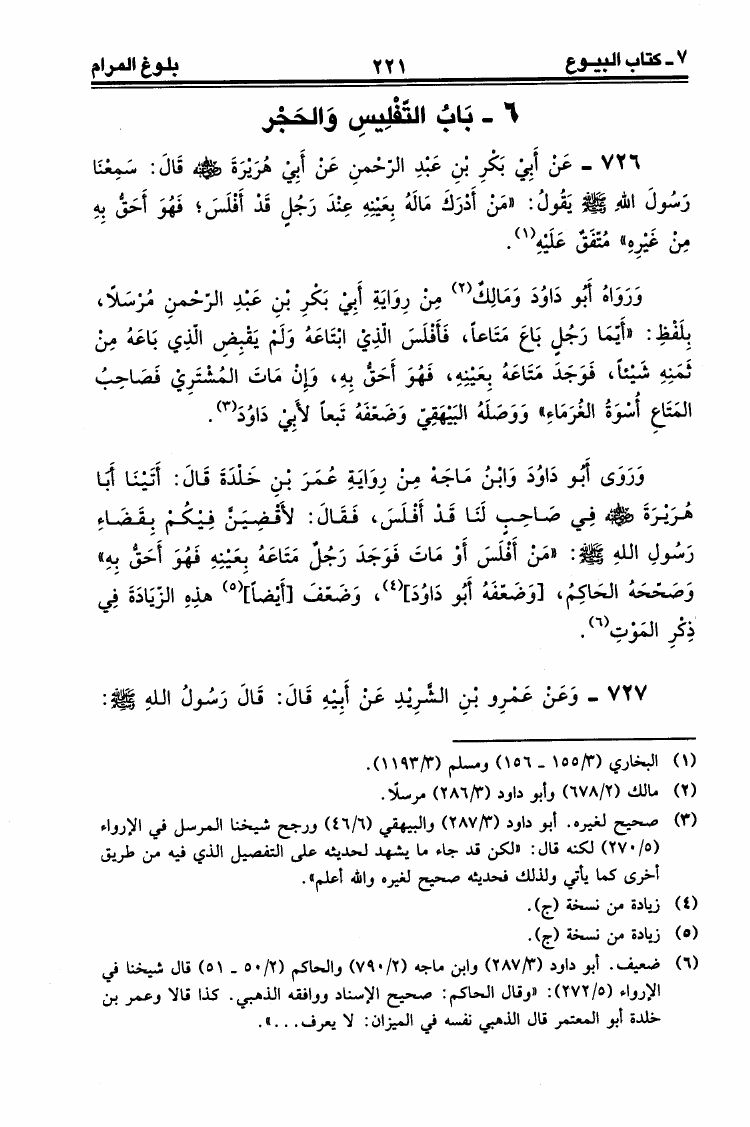 ٧ ـ كتاب البيوع ٢٢١ بلوغ المرام
٦ ـ بَابُ التَّفْلِيسِ وَالحَجْرِ
٧٢٦ ـ عَنْ أَبِيْ بَكْرِ بْنِ عَبْدِ الرّحْمنِ عَنْ أَبِيْ هُرَيْرَةَ ﵁ قَالَ: سَمِعْنَا
رَسُولَ اللهِ ﷺ يَقُولُ: «مَنْ أَدْرَكَ مَالَهُ بِعَيْنِهِ عِنْدَ رَجُلٍ قَدْ أَفْلَسَ؛ فَهُوَ أَحَقُّ بِهِ
مِنْ غَيْرِهِ» مُتّفَقٌ عَلَيْهِ(١).
وَرَوَاهُ أَبُو دَاوُدَ وَمَالِكٌ(٢) مِنْ رِوَايَةِ أَبِيْ بَكْرِ بْنِ عَبْدِ الرّحْمنِ مُرْسَلًا،
بِلَفْظِ: «أَيّمَا رَجُلٍ بَاعَ مَتَاعاً، فَأَفْلَسَ الّذِي ابْتَاعَهُ وَلَمْ يَقْبِضِ الّذِي بَاعَهُ مِنْ
ثَمَنِهِ شَيْئاً، فَوَجَدَ مَتَاعَهُ بِعَيْنِهِ، فَهُوَ أَحَقُّ بِهِ، وَإِنْ مَاتَ المُشْتَرِيْ فَصَاحِبُ
المَتَاعِ أُسْوَةُ الغُرَمَاءِ» وَوَصَلَهُ البَيْهَقِيّ وَضَعّفَهُ تَبعاً لأَبِيْ دَاوُدَ(٣).
وَرَوَى أَبُو دَاوُدَ وَابْنُ مَاجَهْ مِنْ رِوَايَةِ عُمَرَ بْنِ خَلْدَةَ قَالَ: أَتَيْنَا أَبَا
هُرَيْرَةَ ﵁ فِي صَاحِبٍ لَنَا قَدْ أَفْلَسَ، فَقَالَ: لأَقْضِيَنَّ فِيْكُمْ بِقَضَاءِ
رَسُولِ اللهِ ﷺ: «مَنْ أَفْلَسَ أَوْ مَاتَ فَوَجَدَ رَجُلٌ مَتَاعَهُ بِعَيْنِهِ فَهُوَ أَحَقُّ بِهِ»
وَصَحّحَهُ الحَاكِمُ، [وَضَعّفَهُ أَبُو دَاوُدَ](٤)، وَضَعّفَ [أَيْضاً](٥) هذِهِ الزّيَادَةَ فِي
ذِكْرِ المَوْتِ(٦).
٧٢٧ ـ وَعَنْ عَمْرِو بْنِ الشَّرِيْدِ عَنْ أَبِيْهِ قَالَ: قَالَ رَسُولُ اللهِ ﷺ:
(١) البخاري (٣/ ١٥٥ ـ ١٥٦) ومسلم (٣/ ١١٩٣).
(٢) مالك (٢/ ٦٧٨) وأبو داود (٣/ ٢٨٦) مرسلًا.
(٣) صحيح لغيره. أبو داود (٣/ ٢٨٧) والبيهقي (٦/ ٤٦) ورجح شيخنا المرسل في الإرواء
(٥/ ٢٧٠) لكنه قال: «لكن قد جاء ما يشهد لحديثه على التفصيل الذي فيه من طريق
أخرى كما يأتي ولذلك فحديثه صحيح لغيره والله أعلم».
(٤) زيادة من نسخة (ج).
(٥) زيادة من نسخة (ج).
(٦) ضعيف. أبو داود (٣/ ٢٨٧) وابن ماجه (٢/ ٧٩٠) والحاكم (٢/ ٥٠ ـ ٥١) قال شيخنا في
الإرواء (٥/ ٢٧٢): «وقال الحاكم: صحيح الإسناد ووافقه الذهبي. كذا قالا وعمر بن
خلدة أبو المعتمر قال الذهبي نفسه في الميزان: لا يعرف...».